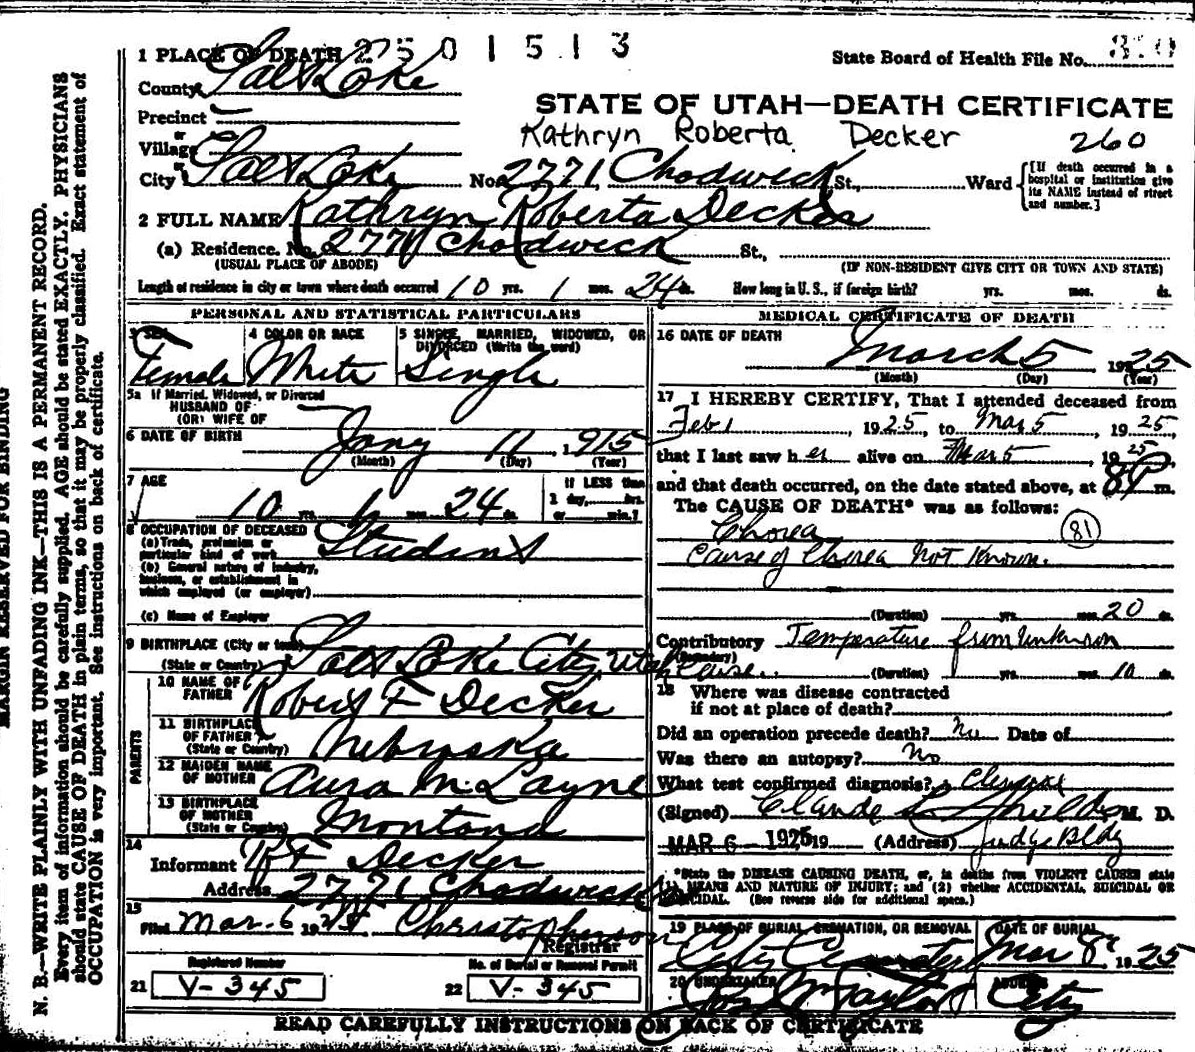 1 PLACE OF DEATH 2501513
State Board of Health File No.
County Salt Lake
STATE OF UTAH—DEATH CERTIFICATE
Precinct
Kathryn Roberta Decker 260
or
Village
or
City Salt Lake No. 2771 Chadwick St., Ward
[If death occurred in a hospital or institution give its NAME instead of street and number.]
2 FULL NAME Kathryn Roberta Decker
(a) Residence. No. 2771 Chadwick St.,
(USUAL PLACE OF ABODE) (IF NON-RESIDENT GIVE CITY OR TOWN AND STATE)
Length of residence in city or town where death occurred 10 yrs. 1 mos. 24 ds. How long in U. S., if foreign birth? yrs. mos. ds.
PERSONAL AND STATISTICAL PARTICULARS
3 SEX 4 COLOR OR RACE 5 SINGLE, MARRIED, WIDOWED, OR DIVORCED (Write the word)
Female White Single
5a If Married, Widowed, or Divorced
HUSBAND OF
(OR) WIFE OF
6 DATE OF BIRTH Jany 11 1915
(Month) (Day) (Year)
7 AGE
10 yrs. 1 mos. 24 ds.
If LESS than
1 day, hrs.
or min.?
8 OCCUPATION OF DECEASED
(a) Trade, profession or
particular kind of work Student
(b) General nature of industry,
business, or establishment in
which employed (or employer)
(c) Name of Employer
9 BIRTHPLACE (City or town)
(State or Country) Salt Lake City, Utah
PARENTS
10 NAME OF
FATHER Robert F Decker
11 BIRTHPLACE
OF FATHER
(State or Country) Nebraska
12 MAIDEN NAME
OF MOTHER Aura M. Layne
13 BIRTHPLACE
OF MOTHER
(State or Country) Montana
14
Informant R F Decker
Address 2771 Chadwick
15
Filed Mar. 6 1925 Christopherson
Registrar
Registered Number No. of Burial or Removal Permit
21 V-345 22 V-345
MEDICAL CERTIFICATE OF DEATH
16 DATE OF DEATH
March 5 1925
(Month) (Day) (Year)
17 I HEREBY CERTIFY, That I attended deceased from
Feb 1, 1925, to Mar 5, 1925,
that I last saw her alive on Mar 5 1925
and that death occurred, on the date stated above, at 8 P m.
The CAUSE OF DEATH* was as follows:
Chorea 81
Cause of Chorea Not Known.
(Duration) yrs. mos. 20 ds.
Contributory Temperature from Unknown
(Secondary) Cause. (Duration) yrs. mos. 10 ds.
18 Where was disease contracted
if not at place of death?
Did an operation precede death? No Date of
Was there an autopsy? No
What test confirmed diagnosis? Clinical
(Signed) Claude L Shields M. D.
MAR 6 - 1925 19 (Address) Judge Bldg
*State the DISEASE CAUSING DEATH, or, in deaths from VIOLENT CAUSES state
(1) MEANS AND NATURE OF INJURY; and (2) whether ACCIDENTAL, SUICIDAL OR
HOMICIDAL. (See reverse side for additional space.)
19 PLACE OF BURIAL, CREMATION, OR REMOVAL DATE OF BURIAL
City Cemetery Mar 8 1925
20 UNDERTAKER ADDRESS
Taylor City
READ CAREFULLY INSTRUCTIONS ON BACK OF CERTIFICATE
MARGIN RESERVED FOR BINDING
N. B.—WRITE PLAINLY WITH UNFADING INK—THIS IS A PERMANENT RECORD.
Every item of information should be carefully supplied. AGE should be stated EXACTLY. PHYSICIANS
should state CAUSE OF DEATH in plain terms, so that it may be properly classified. Exact statement of
OCCUPATION is very important. See instructions on back of certificate.